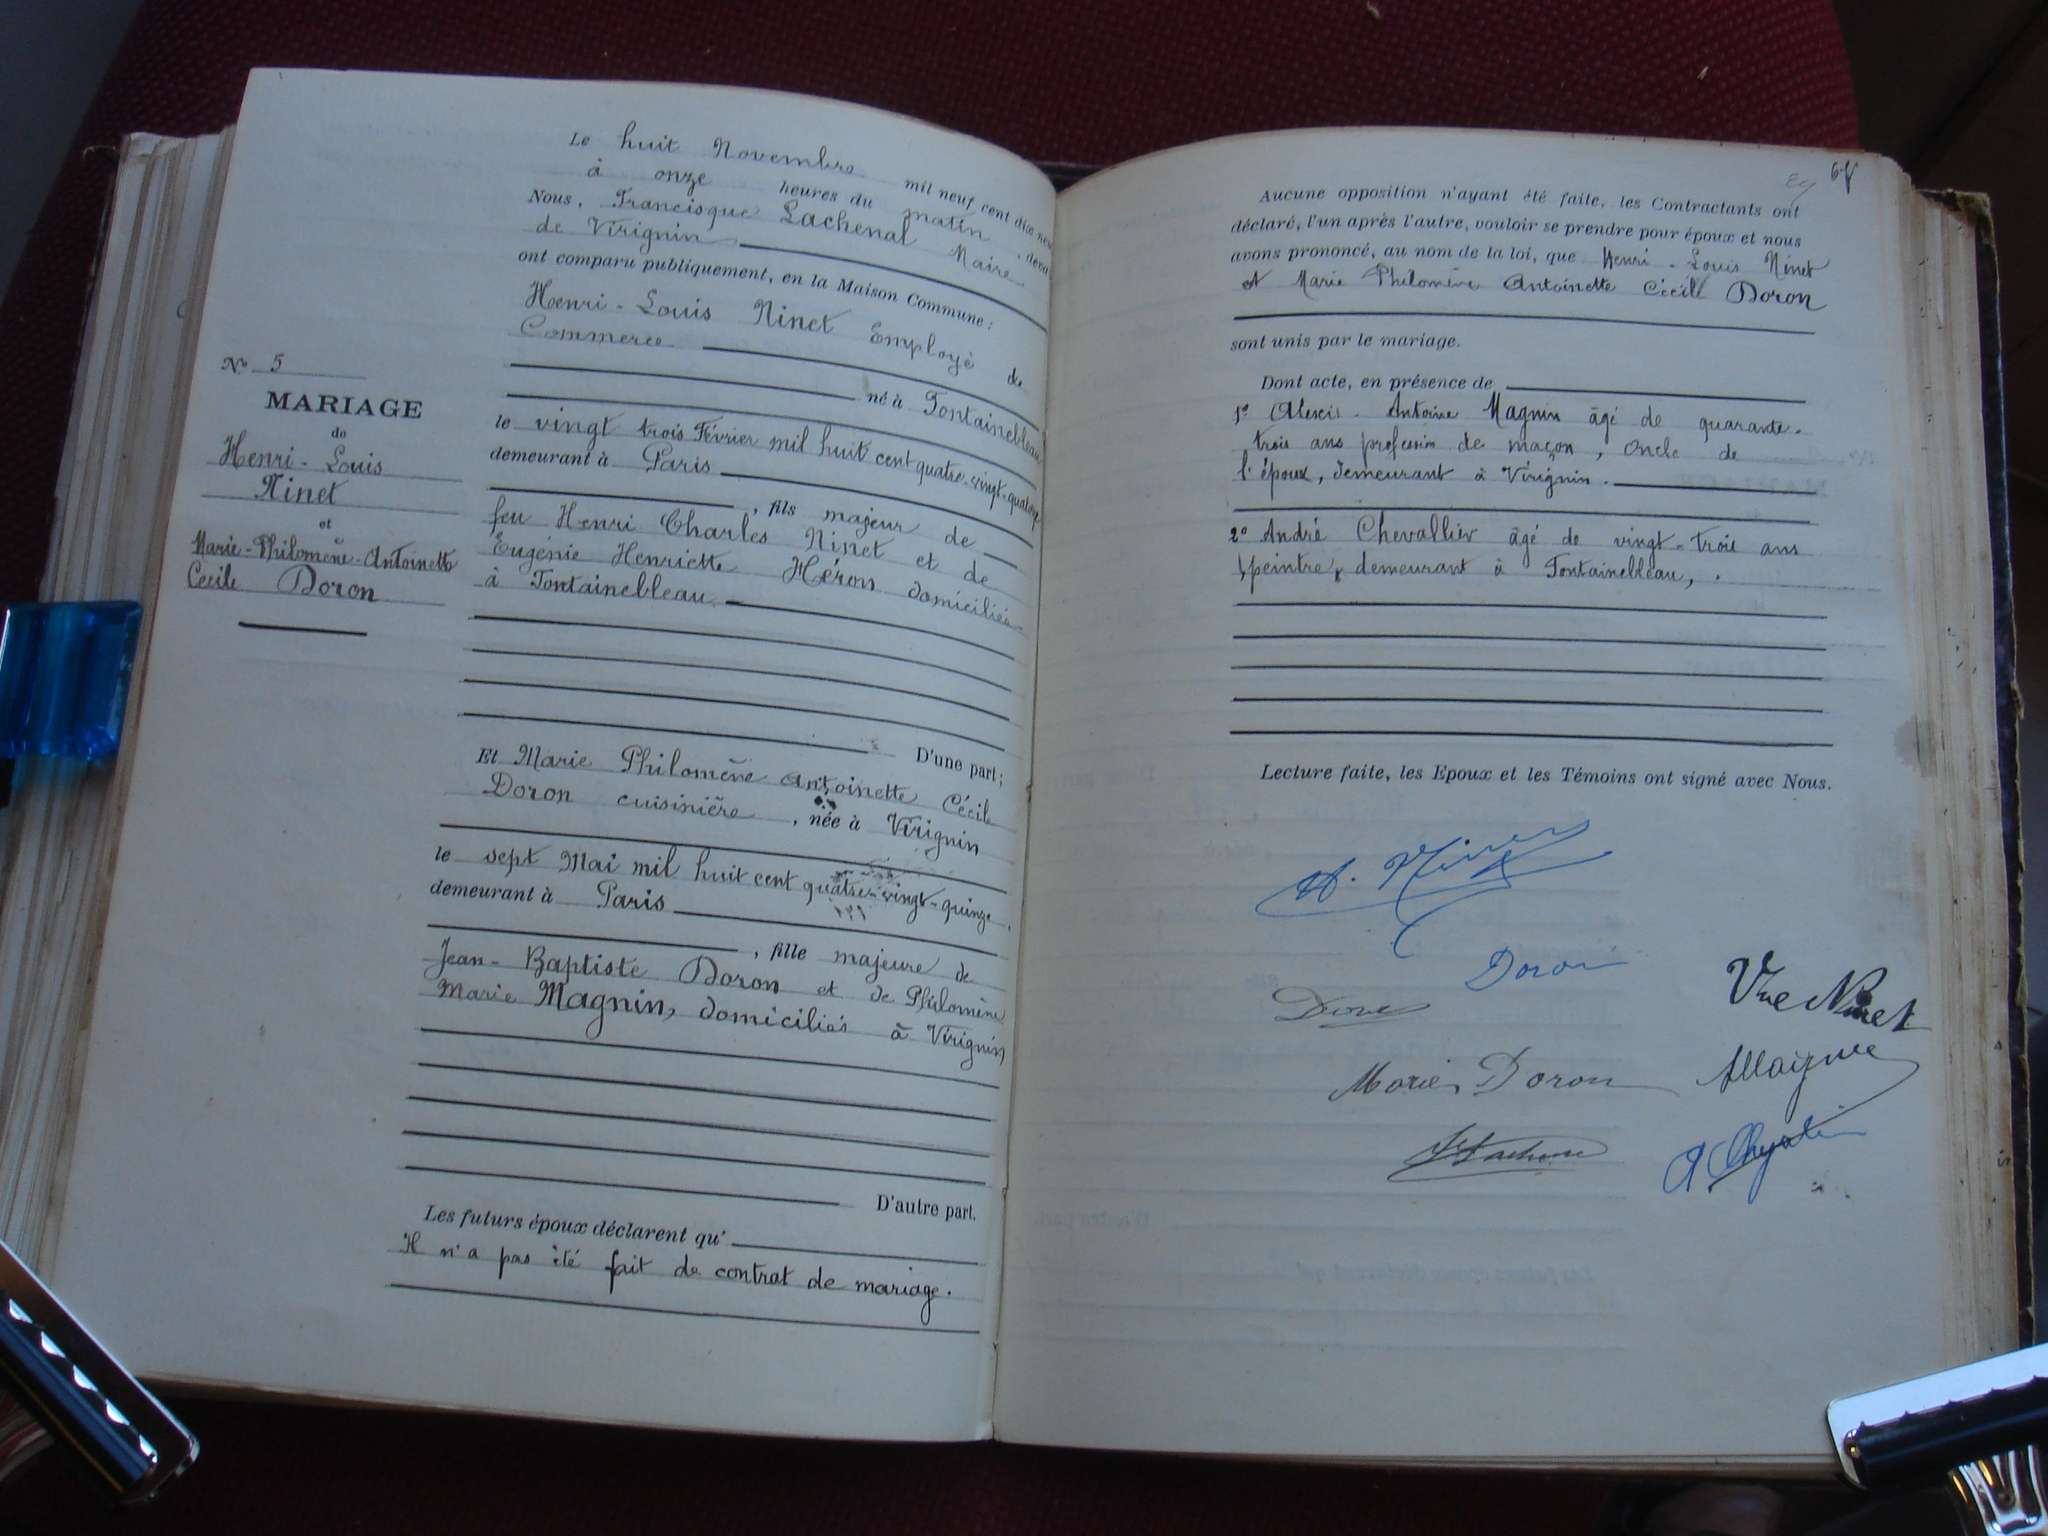 Le huit Novembre mil neuf cent dix-neuf
à onze heures du matin, deva
Nous, Francisque Lachenal Maire
de Virignin
ont comparu publiquement, en la Maison Commune :
Henri-Louis Ninet Employé de
Commerce
né à Fontainebleau
le vingt trois Février mil huit cent quatre-vingt-quatorze
demeurant à Paris
, fils majeur de
feu Henri Charles Ninet et de
Eugénie Henriette Héron domiciliée
à Fontainebleau.
D'une part ;
Nº 5
MARIAGE
de
Henri-Louis
Ninet
et
Marie-Philomène-Antoinette
Cécile Doron
Et Marie Philomène Antoinette Cécile
Doron cuisinière, née à Virignin
le sept Mai mil huit cent quatre-vingt-quinze,
demeurant à Paris
, fille majeure de
Jean-Baptiste Doron et de Philomène
Marie Magnin, domiciliés à Virignin
D'autre part.
Les futurs époux déclarent qu'
Il n'a pas été fait de contrat de mariage.
Aucune opposition n'ayant été faite, les Contractants ont
déclaré, l'un après l'autre, vouloir se prendre pour époux et nous
avons prononcé, au nom de la loi, que Henri-Louis Ninet
et Marie Philomène Antoinette Cécile Doron
sont unis par le mariage.
Dont acte, en présence de
1º Alexis-Antoine Magnin âgé de quarante-
trois ans profession de maçon, oncle de
l'époux, demeurant à Virignin.
2º André Chevallier âgé de vingt-trois ans
peintre, demeurant à Fontainebleau,.
Lecture faite, les Epoux et les Témoins ont signé avec Nous.
H. Ninet
Doron
Vve Ninet
Marie Doron